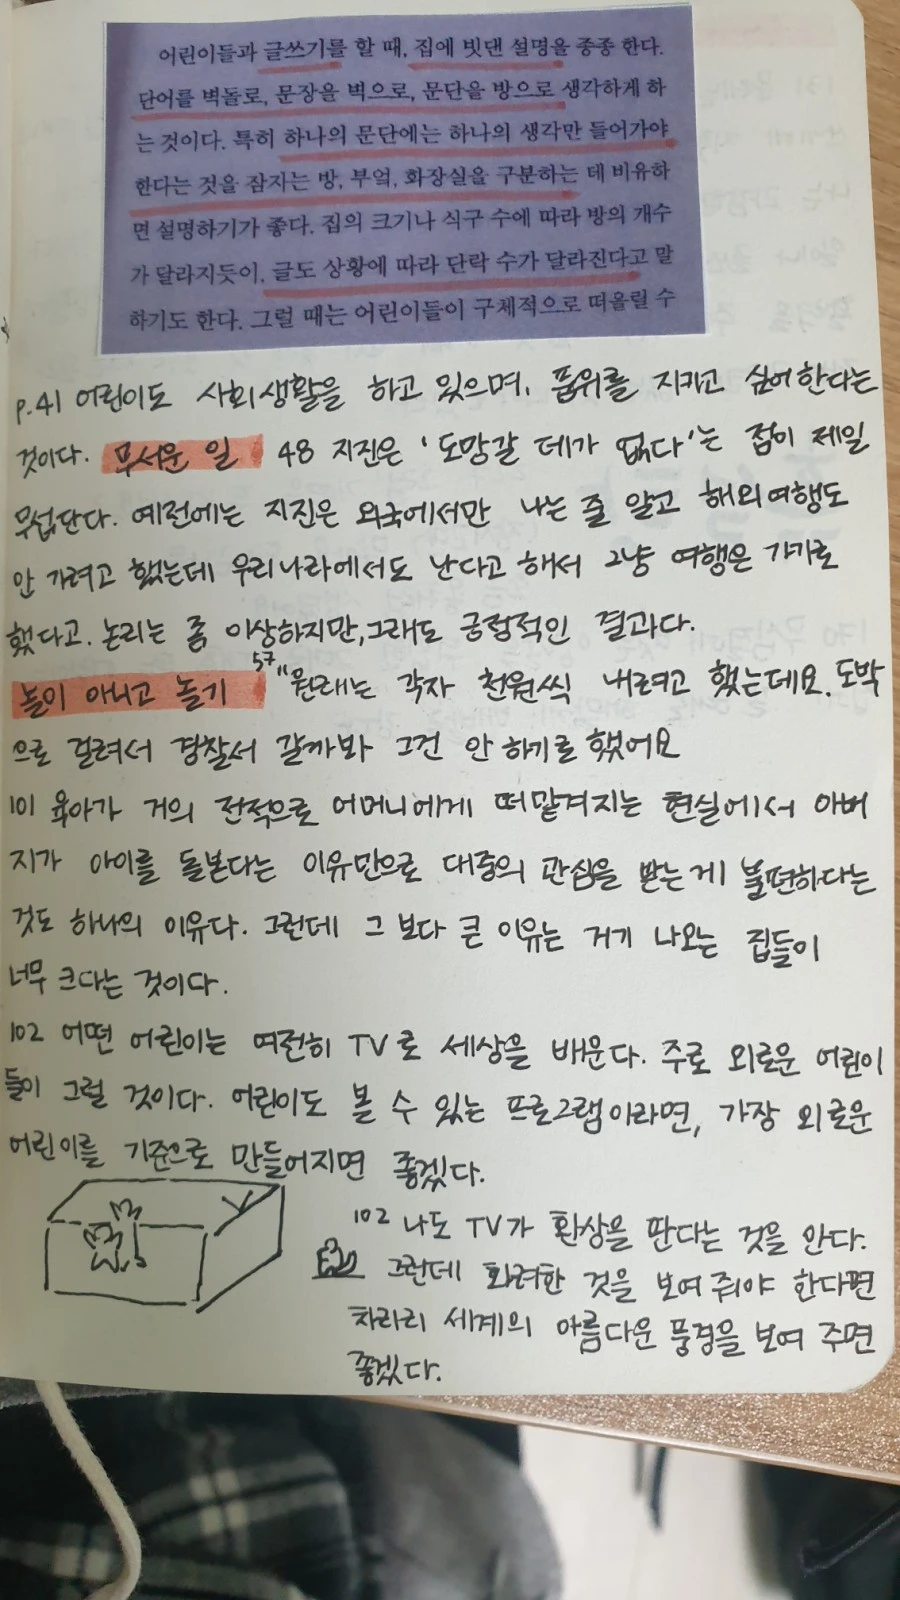 어린이들과 글쓰기를 할 때, 집에 빗댄 설명을 종종 한다.
단어를 벽돌로, 문장을 벽으로, 문단을 방으로 생각하게 하
는 것이다. 특히 하나의 문단에는 하나의 생각만 들어가야
한다는 것을 잠자는 방, 부엌, 화장실을 구분하는 데 비유하
면 설명하기가 좋다. 집의 크기나 식구 수에 따라 방의 개수
가 달라지듯이, 글도 상황에 따라 단락 수가 달라진다고 말
하기도 한다. 그럴 때는 어린이들이 구체적으로 떠올릴 수
p.41 어린이도 사회생활을 하고 있으며, 품위를 지키고 싶어한다는
것이다. 무서운 일 48 지진은 '도망갈 데가 없다'는 점이 제일
무섭단다. 예전에는 지진은 외국에서만 나는 줄 알고 해외여행도
안 가려고 했는데 우리나라에서도 난다고 해서 그냥 여행은 가기로
했다고. 논리는 좀 이상하지만, 그래도 긍정적인 결과다.
놀이 아니고 놀기 57 "원래는 각자 천원씩 내려고 했는데요. 도박
으로 걸려서 경찰서 갈까봐 그건 안 하기로 했어요
101 육아가 거의 전적으로 어머니에게 떠맡겨지는 현실에서 아버
지가 아이를 돌본다는 이유만으로 대중의 관심을 받는 게 불편하다는
것도 하나의 이유다. 그런데 그 보다 큰 이유는 거기 나오는 집들이
너무 크다는 것이다.
102 어떤 어린이는 여전히 TV로 세상을 배운다. 주로 외로운 어린이
들이 그럴 것이다. 어린이도 볼 수 있는 프로그램이라면, 가장 외로운
어린이를 기준으로 만들어지면 좋겠다.
102 나도 TV가 환상을 판다는 것을 안다.
그런데 화려한 것을 보여줘야 한다면
차라리 세계의 아름다운 풍경을 보여 주면
좋겠다.